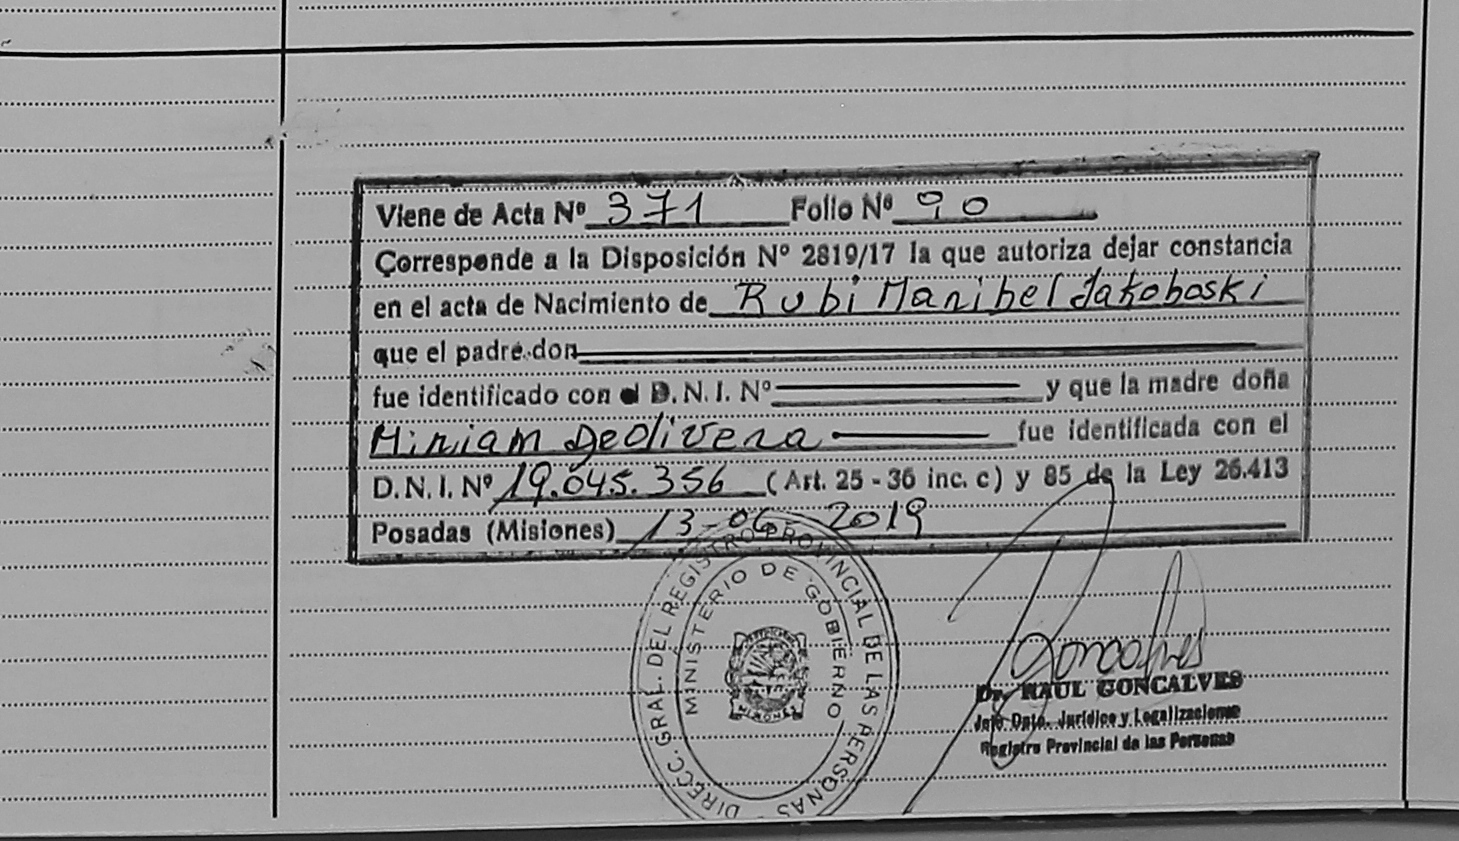 Viene de Acta Nº 371 Folio Nº 90
Corresponde a la Disposición Nº 2819/17 la que autoriza dejar constancia
en el acta de Nacimiento de Rubi Maribel Jakoboski
que el padre don
fue identificado con el D.N.I. Nº y que la madre doña
Miriam Deolivera fue identificada con el
D.N.I. Nº 19.045.356 (Art. 25 - 36 inc. c) y 85 de la Ley 26.413
Posadas (Misiones) 13-06-2019
DIRECC. GRAL. DEL REGISTRO PROVINCIAL DE LAS PERSONAS
MINISTERIO DE GOBIERNO
MISIONES
Goncalves
Dr. RAUL GONCALVES
Jefe Dpto. Jurídico y Legalizaciones
Registro Provincial de las Personas